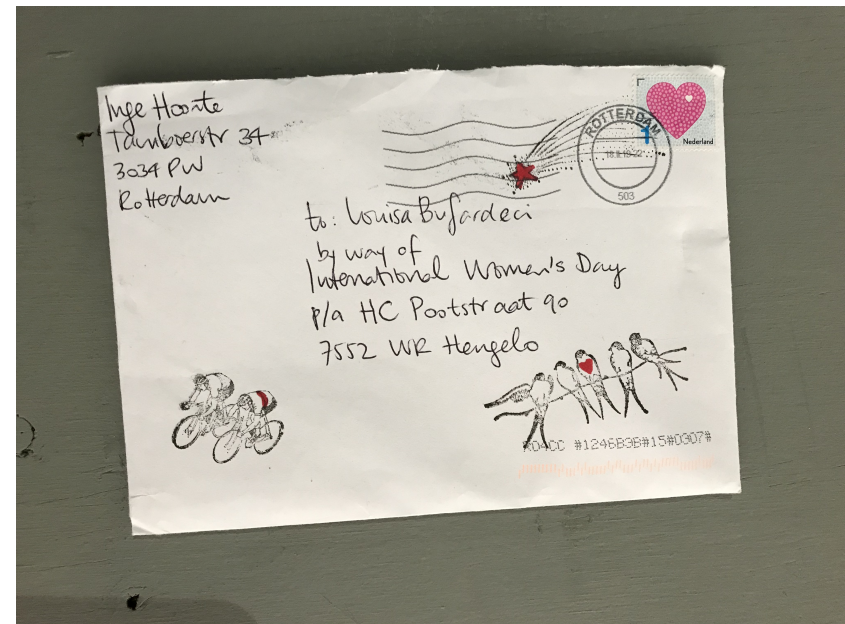 Inge Hoonte
Tamboerstr 34
3034 PW
Rotterdam
ROTTERDAM
1
Nederland
503
to: Louisa Bufardeci
by way of
International Women's Day
p/a HC Pootstraat 90
7552 WR Hengelo
#1246B3B#15#0307#